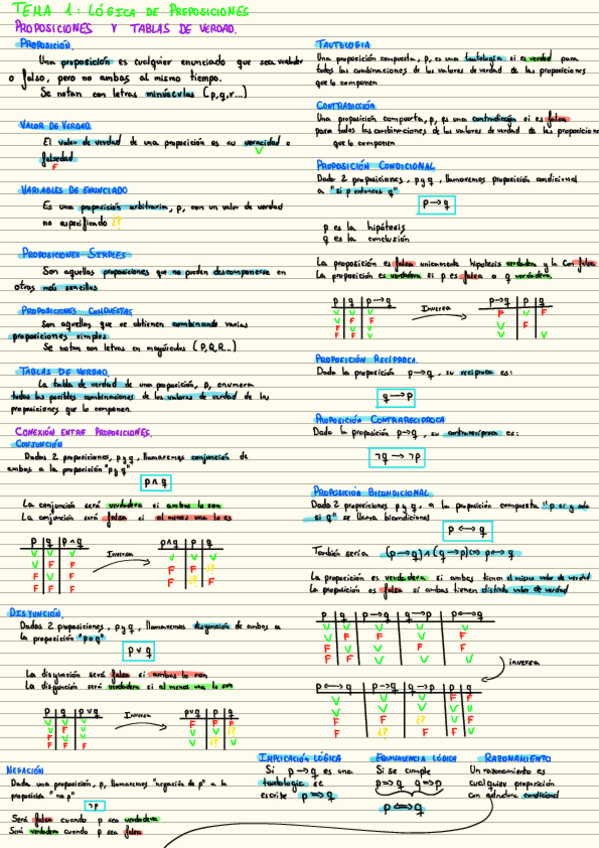 TEMA 1: LÓGICA DE PREPOSICIONES
PROPOSICIONES Y TABLAS DE VERDAD.
PROPOSICIÓN.
Una proposición es cualquier enunciado que sea verdader
o falso, pero no ambas al mismo tiempo.
Se notan con letras minúsculas (p,q,r...)
VALOR DE VERDAD
El valor de verdad de una proposición es su veracidad o
V
falsedad
F
VARIABLES DE ENUNCIADO
Es una proposición arbitraria, p, con un valor de verdad
no especificado ¿?
PROPOSICIONES SIMPLES
Son aquellas proposiciones que no pueden descomponerse en
otras más sencillas
PROPOSICIONES COMPUESTAS
Son aquellas que se obtienen combinando varias
proposiciones simples
Se notan con letras en mayúsculas (P,Q,R...)
TABLAS DE VERDAD.
La tabla de verdad de una proposición, p, enumera
todas las posibles combinaciones de los valores de verdad de las
proposiciones que lo componen
CONEXIÓN ENTRE PROPOSICIONES.
CONJUNCIÓN
Dadas 2 proposiciones, p y q, llamaremos conjunción de
ambas a la proposición "p y q"
p∧q
La conjunción será verdadera si ambas lo son
La conjunción será falsa si al menos una lo es
p q p∧q
Inversa
p∧q p q
DISYUNCIÓN.
Dadas 2 proposiciones, p y q, llamaremos disyunción de ambas a
la proposición "p o q"
p∨q
La disyunción será falsa si ambas lo son
La disyunción será verdadera si al menos una lo son
p q p∨q
Inversa
p∨q p q
NEGACIÓN
Dada una proposición, p, llamaremos "negación de p" a la
proposición "no p"
¬p
Será falsa cuando p sea verdadera
Será verdadera cuando p sea falsa
TAUTOLOGIA
Una proposición compuesta, p, es una tautología si es verdad para
todas las combinaciones de los valores de verdad de las proposiciones
que lo componen
CONTRADICCIÓN
Una proposición compuerta, p, es una contradicción si es falsa
para todas las combinaciones de los valores de verdad de las proposicione
que lo componen
PROPOSICIÓN CONDICIONAL
Dadas 2 proposiciones, p y q, llamaremos proposición condicional
a "si p entonces q"
p→q
p es la hipótesis
q es la conclusión
La proposición es falsa unicamente hipotesis verdadera y la con falsa
La proposición es verdadera si p es falsa o q verdadera
p q p→q
Inversa
p→q p q
PROPOSICIÓN RECÍPROCA.
Dada la proposición p→q, su recíproca es:
q→p
PROPOSICIÓN CONTRARECÍPROCA
Dada la proposición p→q, su contrarecíproca es:
¬q → ¬p
PROPOSICIÓN BICONDICIONAL
Dadas 2 proposiciones p y q, a la proposición compuesta "p si y solo
si q" se llama bicondicional
p↔q
También sería (p→q)∧(q→p)⇔p↔q
La proposición es verdadera si ambas tienen el mismo valor de verdad
La proposición es falsa si ambas tienen distinto valor de verdad
p q p→q q→p p↔q
inversa
p↔q p→q q→p p q
IMPLICACIÓN LÓGICA
Si p→q es una
tautología se
escribe p⇒q
EQUIVALENCIA LÓGICA
Si se cumple
p⇒q q⇒p
p⇔q
RAZONAMIENTO
Un razonamiento es
cualquier proposición
con estructura condicional